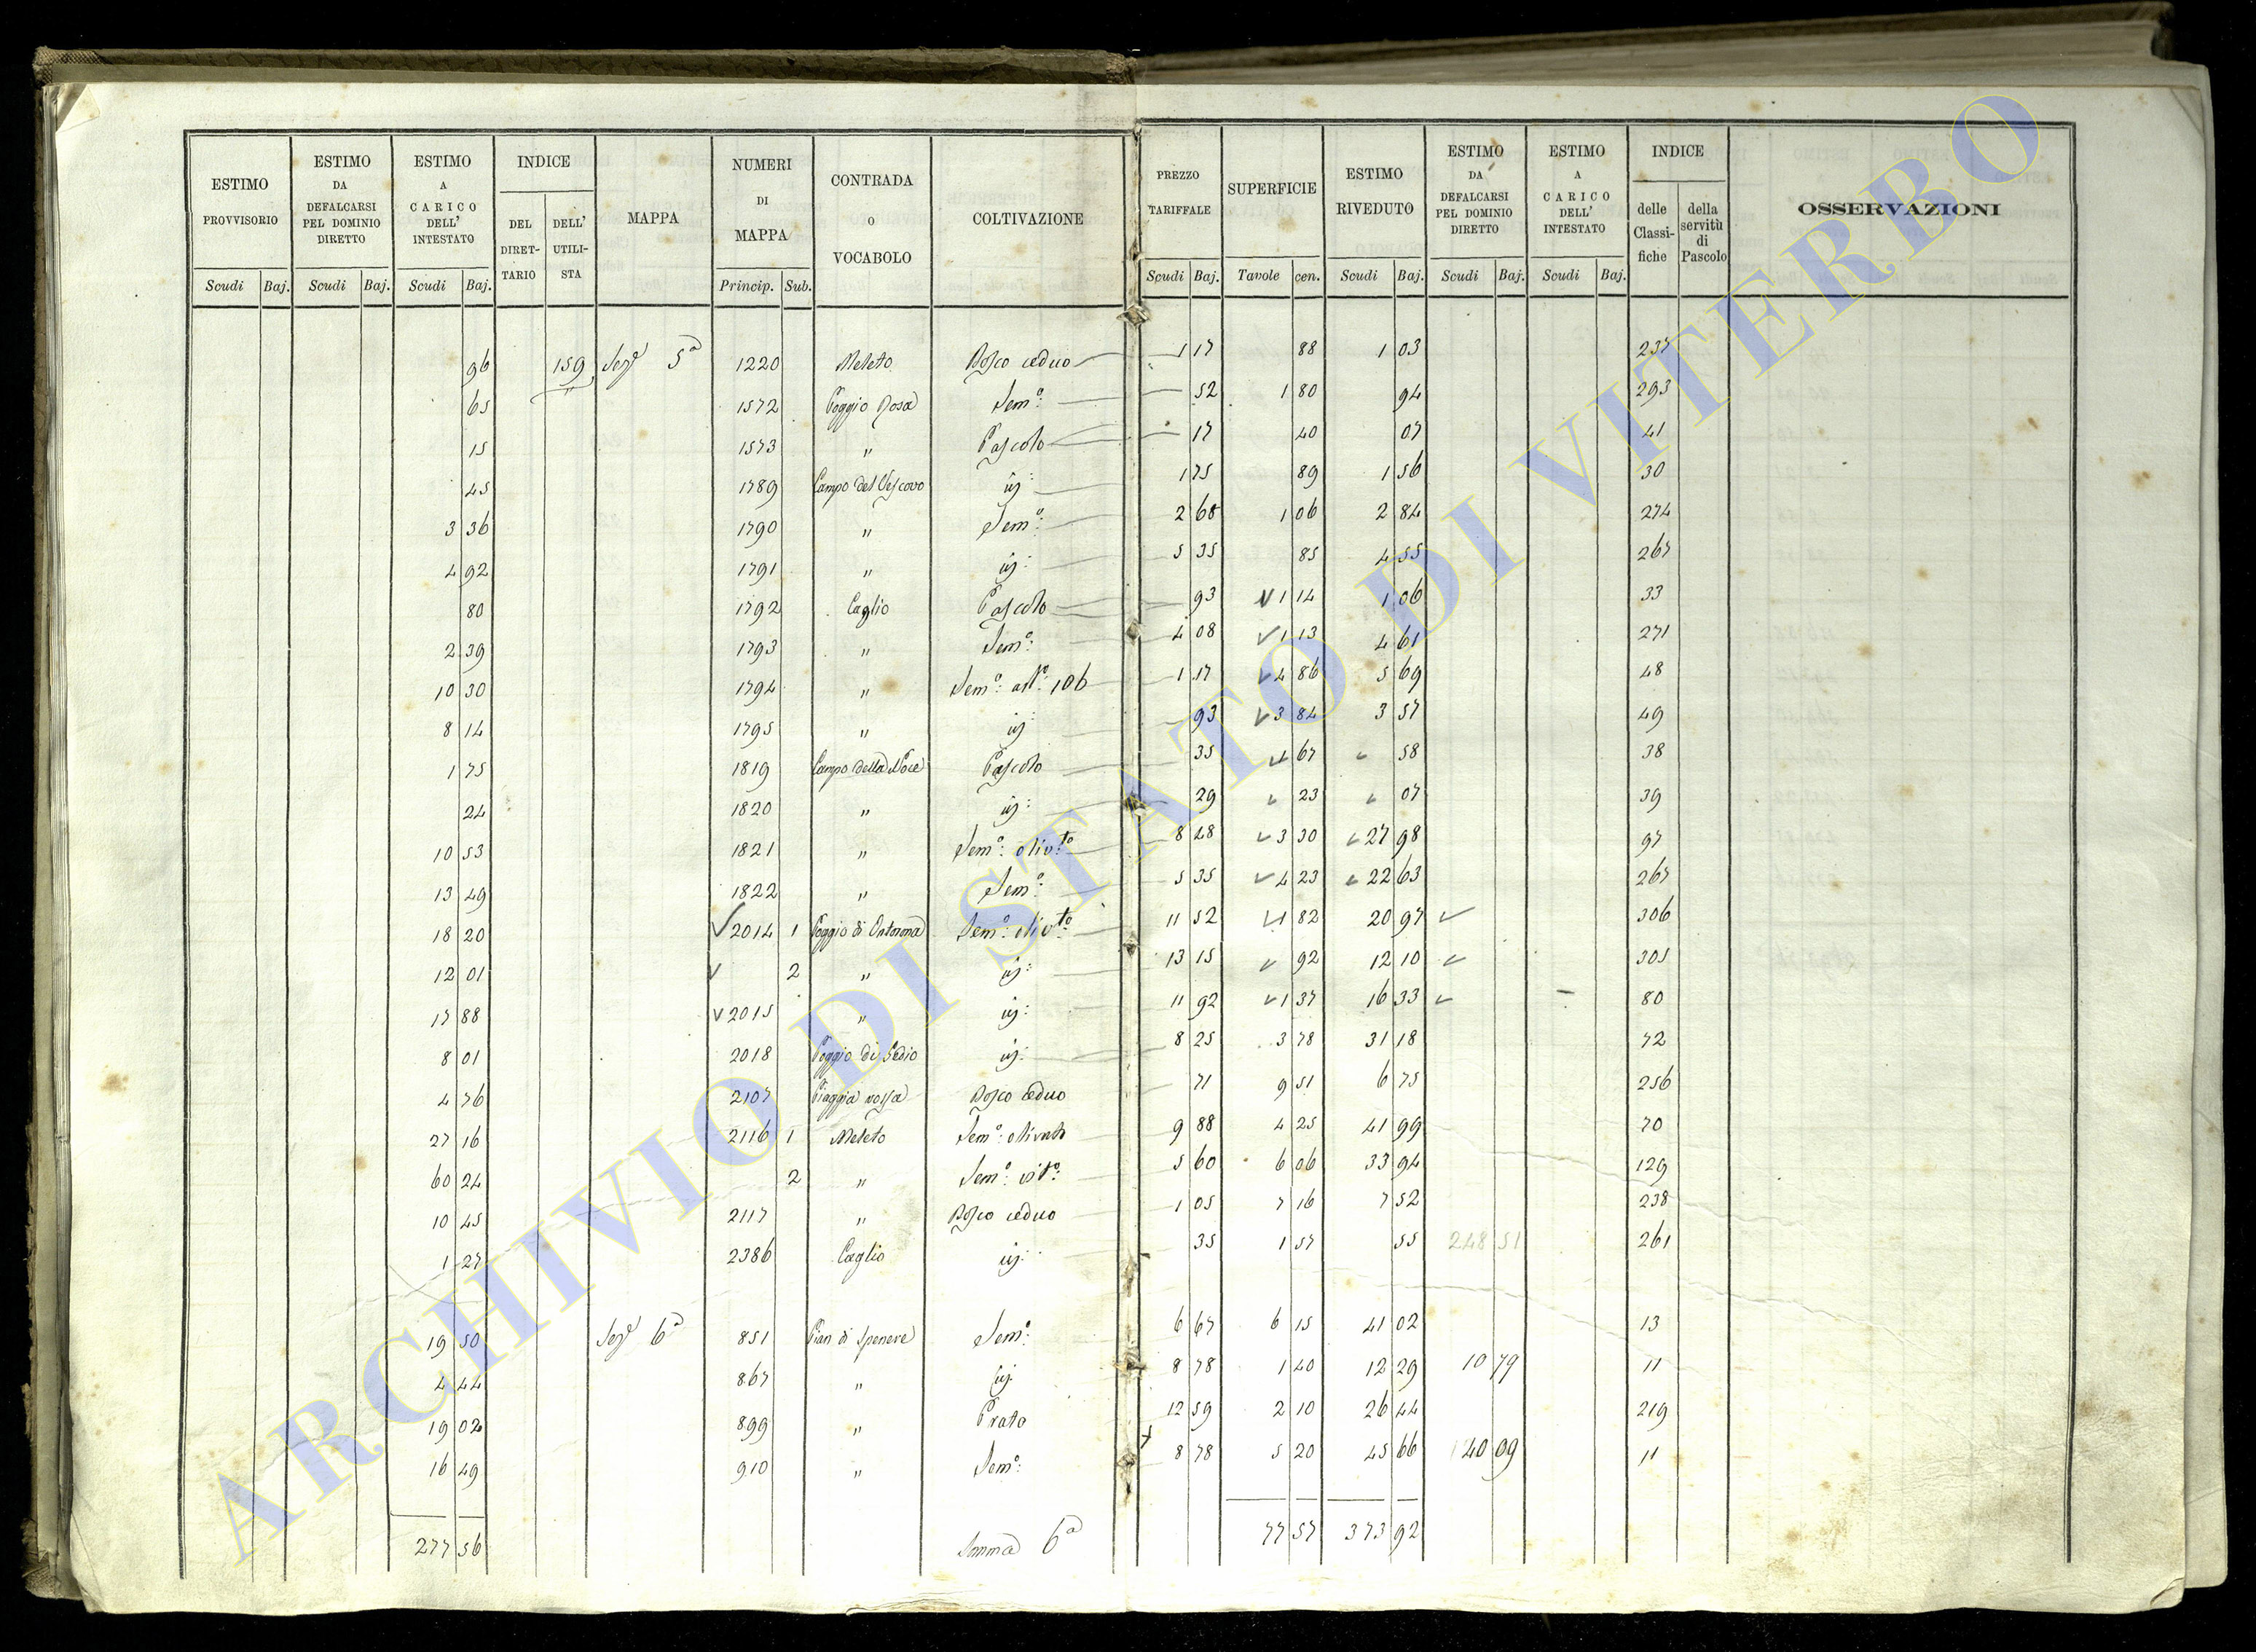 ESTIMO PROVVISORIO Scudi Baj.
ESTIMO DA DEFALCARSI PEL DOMINIO DIRETTO Scudi Baj.
ESTIMO A CARICO DELL' INTESTATO Scudi Baj.
INDICE DEL DIRET-TARIO DELL' UTILI-STA
MAPPA
NUMERI DI MAPPA Princip. Sub.
CONTRADA O VOCABOLO
COLTIVAZIONE
PREZZO TARIFFALE Scudi Baj.
SUPERFICIE Tavole cen.
ESTIMO RIVEDUTO Scudi Baj.
ESTIMO DA DEFALCARSI PEL DOMINIO DIRETTO Scudi Baj.
ESTIMO A CARICO DELL' INTESTATO Scudi Baj.
INDICE delle Classi-fiche della servitù di Pascolo
OSSERVAZIONI
96 159 Sezе 5a 1220 Meleto Bosco ceduo 1 17 88 1 03 237
65 1572 Poggio Rosa Semo: 52 1 80 94 293
15 1573 " Pascolo 17 40 07 41
45 1789 Campo del Vescovo id: 1 75 89 1 56 30
3 36 1790 " Semo: 2 68 1 06 2 84 274
4 92 1791 " id: 5 35 85 4 55 267
80 1792 Caglio Pascolo 93 1 14 1 06 33
2 39 1793 " Semo: 4 08 1 13 4 61 271
10 30 1794 " Semo: 106 1 17 4 86 5 69 48
8 14 1795 " id 93 3 84 3 57 49
1 75 1819 Campo della Noce Pascolo 35 1 67 58 38
24 1820 " id: 29 23 07 39
10 53 1821 " Semo: olivto 8 48 3 30 27 98 97
13 49 1822 " Semo: 5 35 4 23 22 63 267
18 20 2014 1 Poggio di Semo: olivto 11 52 1 82 20 97 306
12 01 2 " id: 13 15 92 12 10 305
17 88 2015 " id: 11 92 1 37 16 33 80
8 01 2018 Poggio id: 8 25 3 78 31 18 72
4 76 2107 Piaggia rossa Bosco ceduo 71 9 51 6 75 256
27 16 2116 1 Meleto Semo: olivato 9 88 4 25 41 99 70
60 24 2 " Semo: vito: 5 60 6 06 33 94 129
10 45 2117 " Bosco ceduo 1 05 7 16 7 52 238
1 27 2386 Caglio id: 35 1 57 55 248 51 261
19 50 Seze 6a 851 Pian di Spenere Semo: 6 67 6 15 41 02 13
4 44 867 " id 8 78 1 40 12 29 10 79 11
19 02 899 " Prato 12 59 2 10 26 44 219
16 49 910 " Semo: 8 78 5 20 45 66 40 09 11
277 56 Somma 6a 77 57 373 92
ARCHIVIO DI STATO DI VITERBO